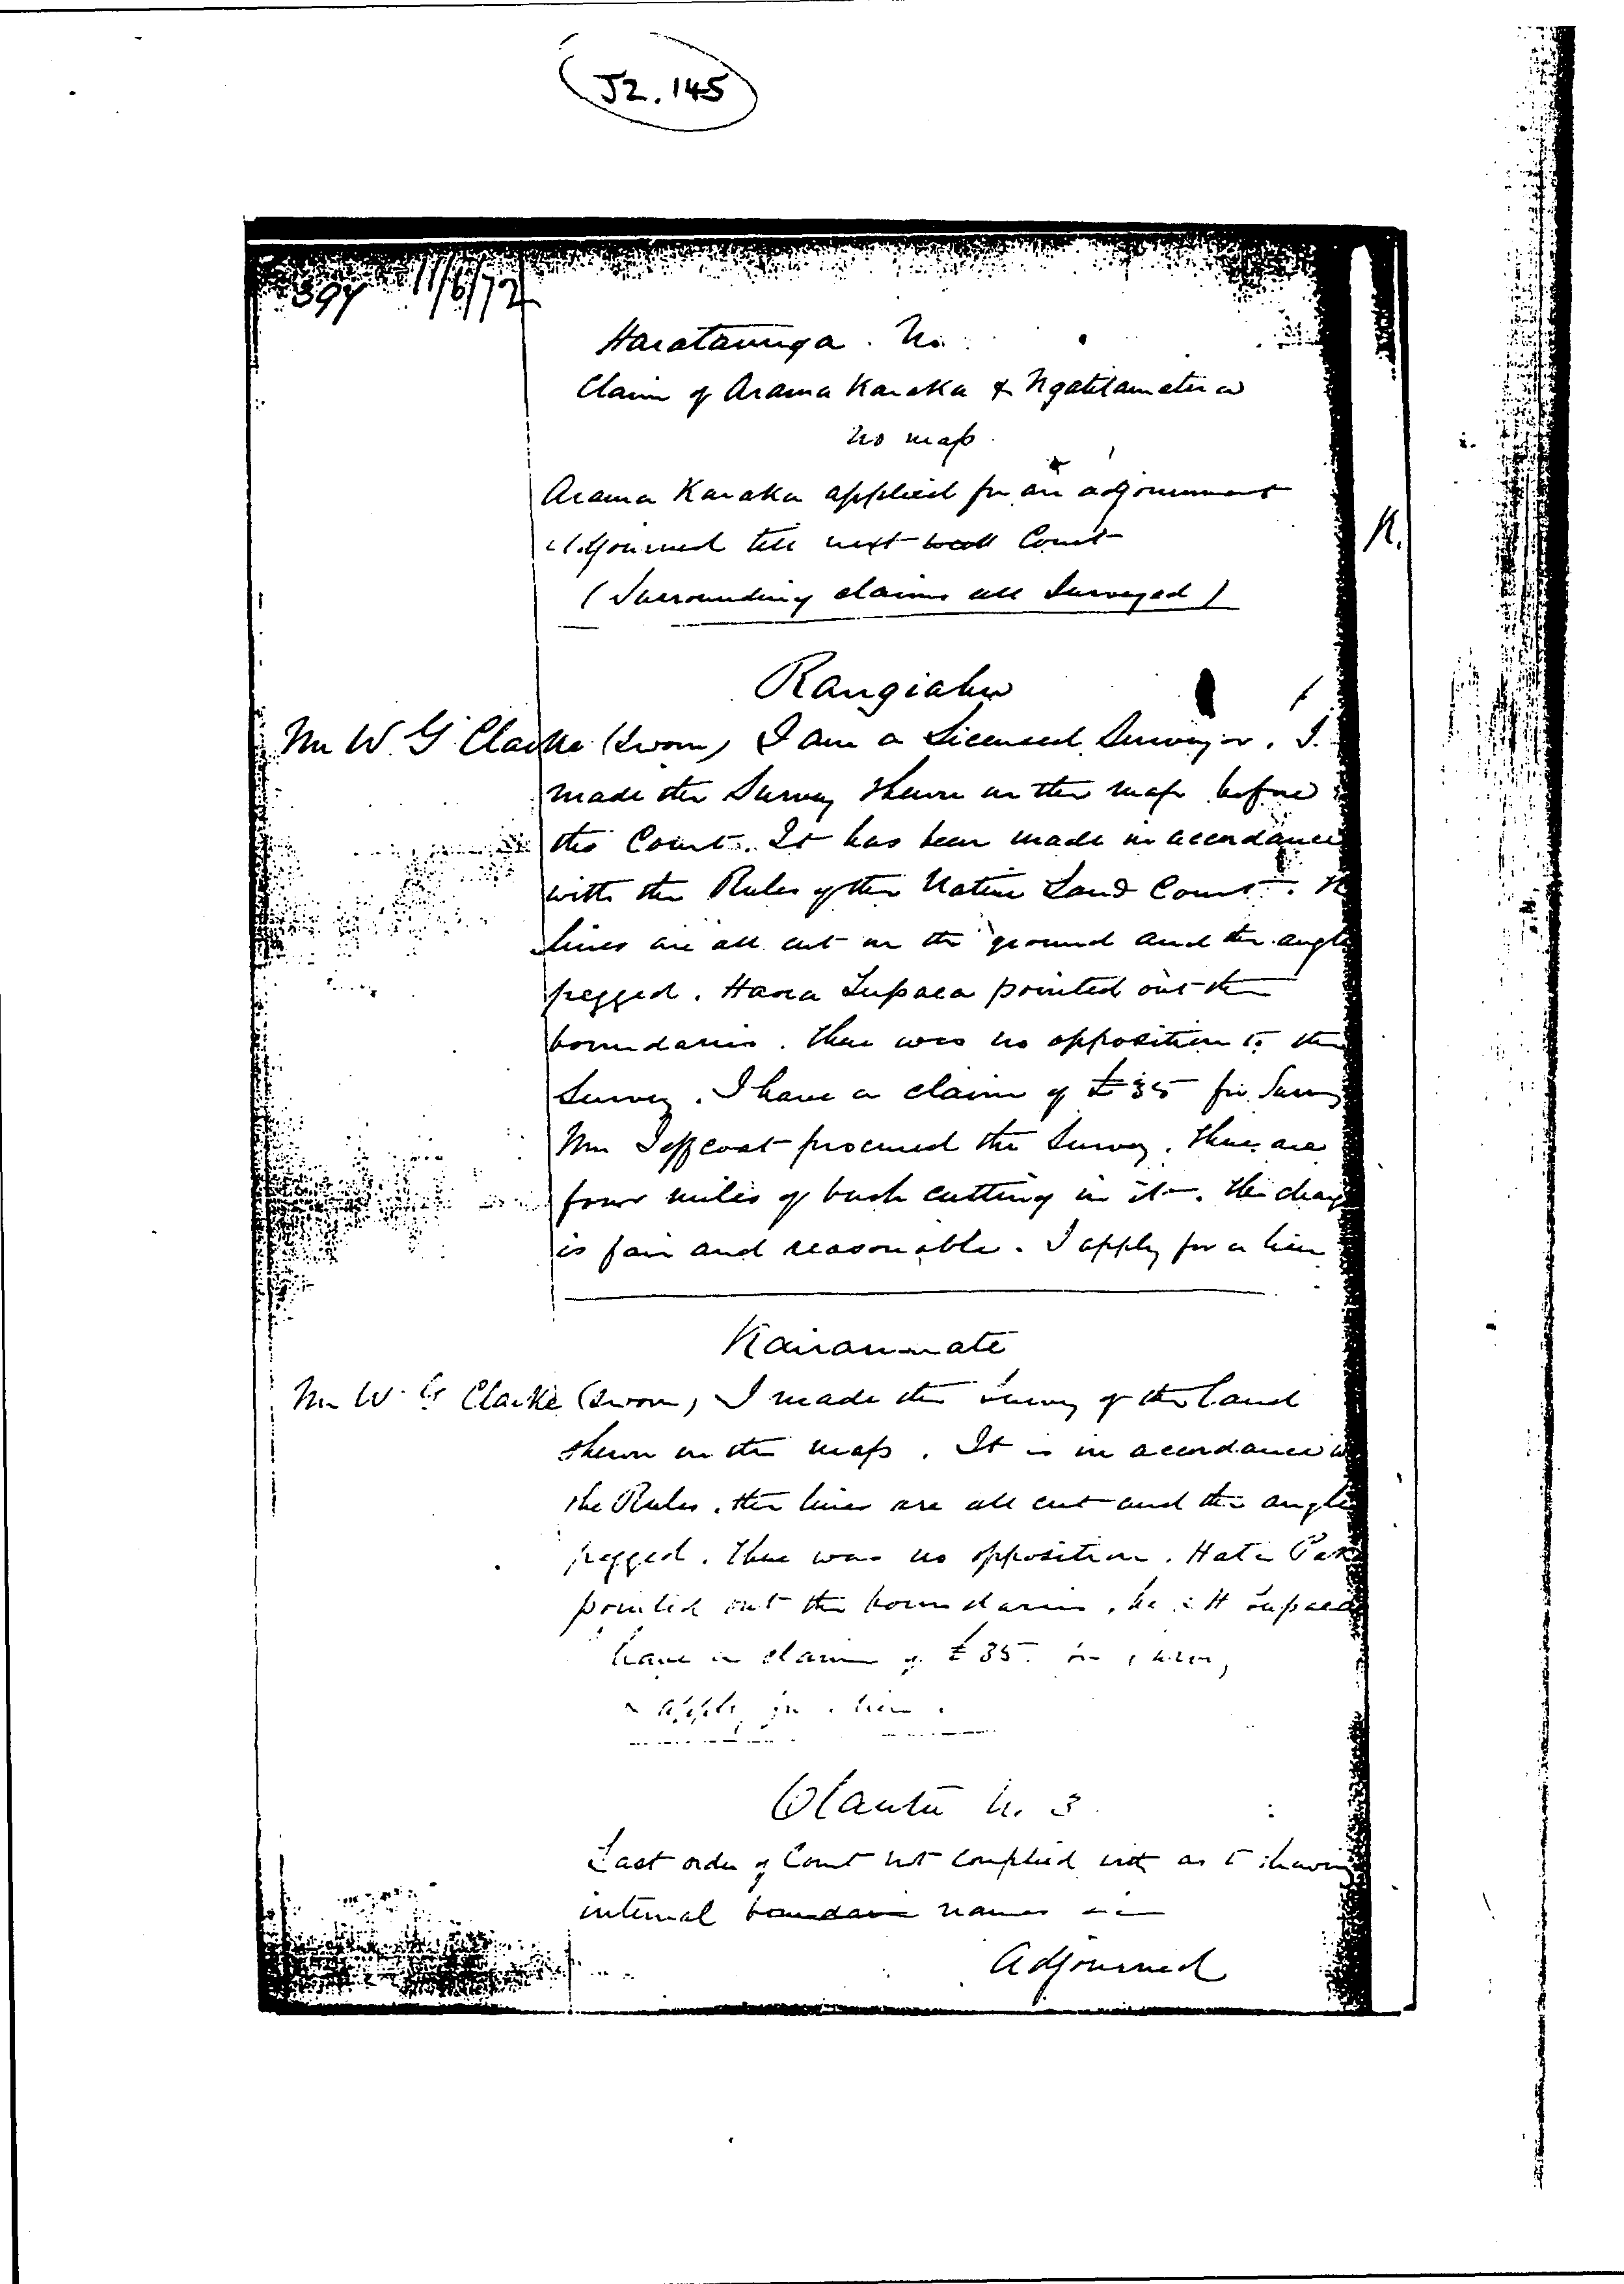 J2.145
394 11/6/72
Harataunga. No
Claim of Arama Karaka & Ngatitamatera
No map.
Arama Karaka applied for an adjournment
Adjourned till next Court
(Surrounding claims all Surveyed)
R.
Rangiahu
Mr W. G Clarke (sworn) I am a Licensed Surveyor. I
made the Survey shewn on the map before
this Court. It has been made in accordance
with the Rules of the Native Land Court.
lines are all cut on the ground and the angle
pegged. Hara Tupaea pointed out the
boundaries. There was no opposition to the
Survey. I have a claim of £35 for Survey
Mr Jeffcoat procured the Survey. There are
four miles of bush cutting in it. The charge
is fair and reasonable. I apply for a lien
Mr W. G Clarke (sworn) I made the Survey of the land
shewn on the map. It is in accordance
the Rules. the lines are all cut and the angle
pegged. There was no opposition.
pointed out the boundaries, he & H Tupaea
have a claim of £35. for
apply for a lien.
No. 3.
Last order of Court not complied with as to shewing
internal boundare names
Adjourned